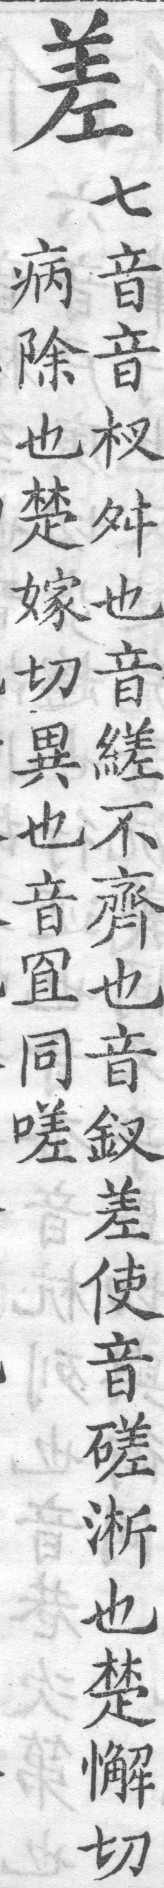 差
七音音杈舛也音縒不齊也音釵差使音磋淅也楚懈切
病除也楚嫁切異也音罝同嗟